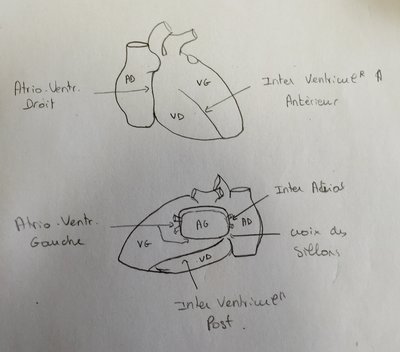 Atrio-Ventr.
Droit
AD
VG
VD
Inter Ventricul^R A
Antérieur
Atrio-Ventr.
Gauche
VG
AG
AD
VD
Inter Atrial
croix des
Sillons
Inter Ventricul^R
Post.